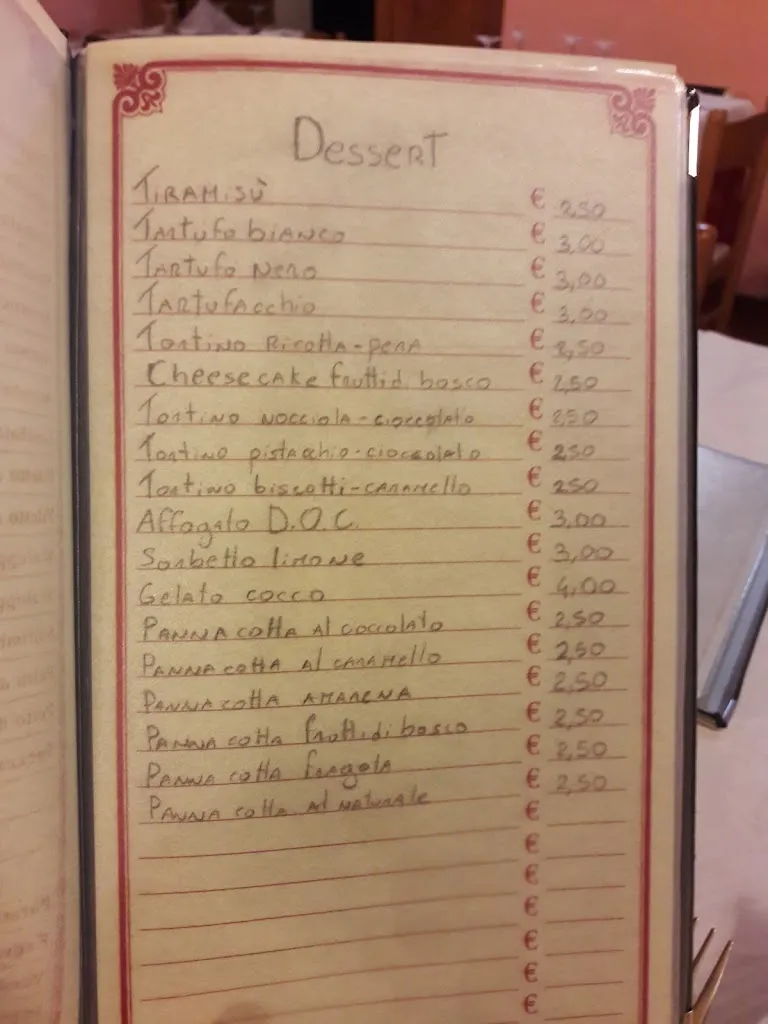 Dessert
Tiramisù € 2,50
Tartufo bianco € 3,00
Tartufo nero € 3,00
Tartufacchio € 3,00
Tortino Ricotta-pera € 2,50
Cheesecake frutti di bosco € 2,50
Tortino nocciola-cioccolato € 2,50
Tortino pistacchio-cioccolato € 2,50
Tortino biscotti-caramello € 2,50
Affogato D.O.C. € 3,00
Sorbetto limone € 3,00
Gelato cocco € 4,00
Panna cotta al coccolato € 2,50
Panna cotta al caramello € 2,50
Panna cotta amarena € 2,50
Panna cotta frutti di bosco € 2,50
Panna cotta fragola € 2,50
Panna cotta al naturale € 2,50
€
€
€
€
€
€
€